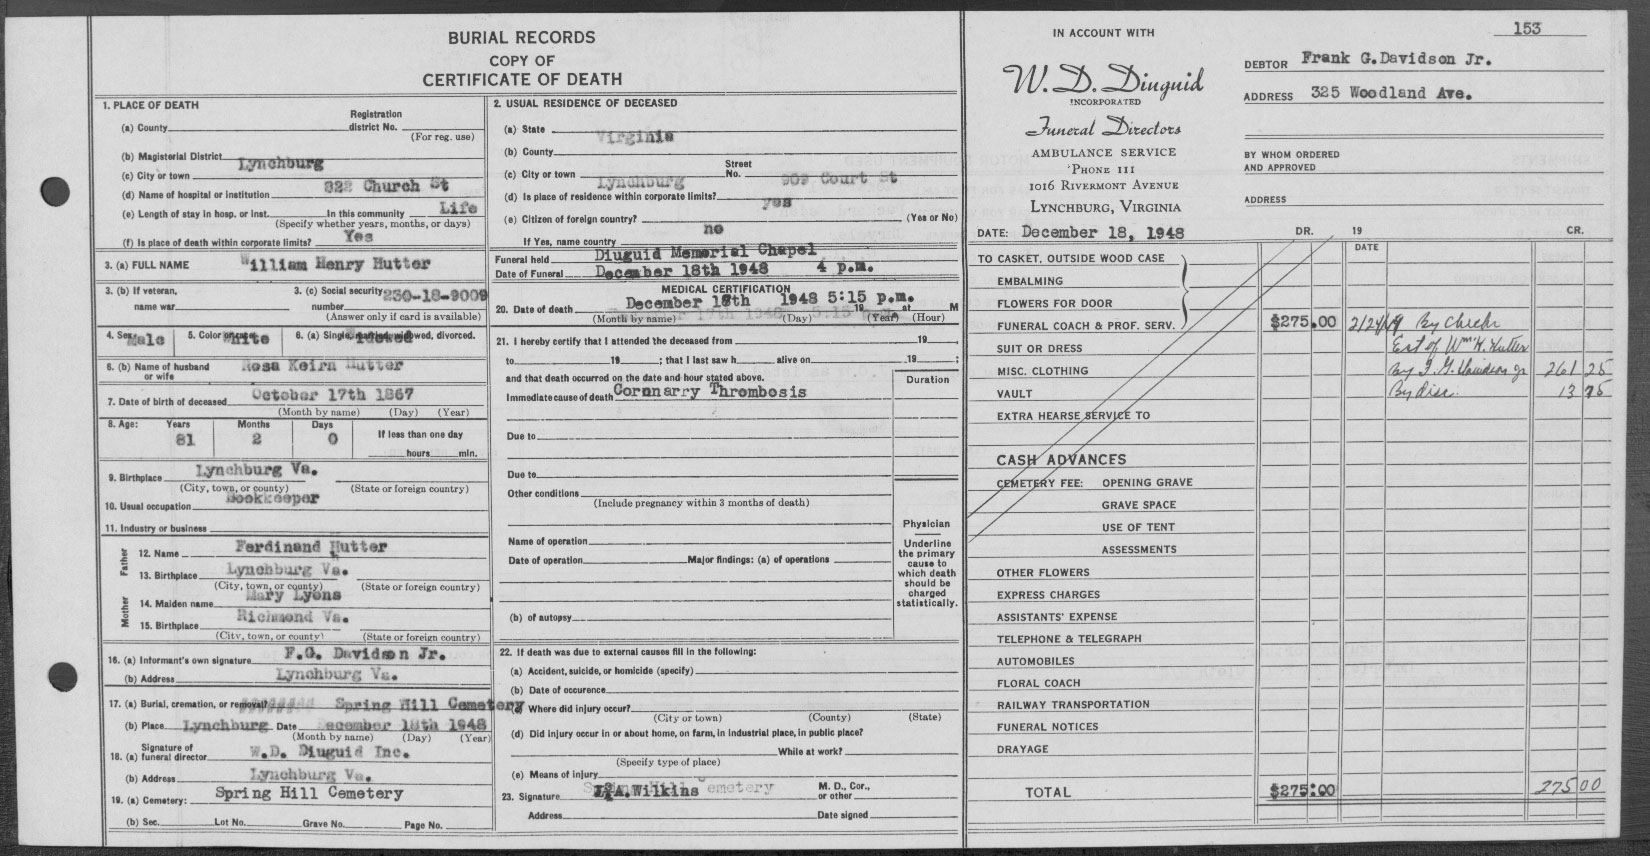 BURIAL RECORDS
COPY OF
CERTIFICATE OF DEATH
1. PLACE OF DEATH
Registration
(a) County district No.
(For reg. use)
(b) Magisterial District
Lynchburg
(c) City or town
(d) Name of hospital or institution 822 Church St
(e) Length of stay in hosp. or inst. In this community Life
(Specify whether years, months, or days)
(f) Is place of death within corporate limits? Yes
3. (a) FULL NAME William Henry Hutter
3. (b) If veteran, name war
3. (c) Social security number 230-18-9009
(Answer only if card is available)
4. Sex Male 5. Color White 6. (a) Single, married, widowed, divorced.
6. (b) Name of husband or wife Rosa Keirn Hutter
7. Date of birth of deceased October 17th 1867
(Month by name) (Day) (Year)
8. Age: Years Months Days If less than one day
81 2 0 hours min.
9. Birthplace Lynchburg Va.
(City, town, or county) (State or foreign country)
10. Usual occupation Bookkeeper
11. Industry or business
Father
12. Name Ferdinand Hutter
13. Birthplace Lynchburg Va.
(City, town, or county) (State or foreign country)
Mother
14. Maiden name Mary Lyons
15. Birthplace Richmond Va.
(City, town, or county) (State or foreign country)
16. (a) Informant's own signature F.G. Davidson Jr.
(b) Address Lynchburg Va.
17. (a) Burial, cremation, or removal? Spring Hill Cemetery
(b) Place Lynchburg Date December 18th 1948
(Month by name) (Day) (Year)
18. (a) Signature of funeral director W.D. Diuguid Inc.
(b) Address Lynchburg Va.
19. (a) Cemetery: Spring Hill Cemetery
(b) Sec. Lot No. Grave No. Page No.
2. USUAL RESIDENCE OF DECEASED
(a) State Virginia
(b) County
Street
(c) City or town Lynchburg No. 909 Court St
(d) Is place of residence within corporate limits? yes
(e) Citizen of foreign country? (Yes or No)
no
If Yes, name country
Funeral held Diuguid Memorial Chapel
Date of Funeral December 18th 1948 4 p.m.
MEDICAL CERTIFICATION
20. Date of death December 17th 1948 5:15 p.m. 19 at M
(Month by name) (Day) (Year) (Hour)
21. I hereby certify that I attended the deceased from 19
to 19 ; that I last saw h alive on 19 ;
and that death occurred on the date and hour stated above.
Duration
Immediate cause of death Coronarry Thrombosis
Due to
Due to
Other conditions
(Include pregnancy within 3 months of death)
Name of operation
Date of operation Major findings: (a) of operations
(b) of autopsy
Physician
Underline
the primary
cause to
which death
should be
charged
statistically.
22. If death was due to external causes fill in the following:
(a) Accident, suicide, or homicide (specify)
(b) Date of occurence
(c) Where did injury occur?
(City or town) (County) (State)
(d) Did injury occur in or about home, on farm, in industrial place, in public place?
While at work?
(Specify type of place)
(e) Means of injury
23. Signature Wilkins M. D., Cor., or other
Address Date signed
153
IN ACCOUNT WITH
W. D. Diuguid
INCORPORATED
Funeral Directors
AMBULANCE SERVICE
'PHONE 111
1016 RIVERMONT AVENUE
LYNCHBURG, VIRGINIA
DATE: December 18, 1948
DEBTOR Frank G.Davidson Jr.
ADDRESS 325 Woodland Ave.
BY WHOM ORDERED
AND APPROVED
ADDRESS
DR. 19 CR.
DATE
TO CASKET, OUTSIDE WOOD CASE
EMBALMING
FLOWERS FOR DOOR
FUNERAL COACH & PROF. SERV. $275.00 2/24/49 By Check
SUIT OR DRESS Est of Wm H. Hutter
MISC. CLOTHING By F. G. Davidson Jr 261 25
VAULT By disc. 13 75
EXTRA HEARSE SERVICE TO
CASH ADVANCES
CEMETERY FEE: OPENING GRAVE
GRAVE SPACE
USE OF TENT
ASSESSMENTS
OTHER FLOWERS
EXPRESS CHARGES
ASSISTANTS' EXPENSE
TELEPHONE & TELEGRAPH
AUTOMOBILES
FLORAL COACH
RAILWAY TRANSPORTATION
FUNERAL NOTICES
DRAYAGE
TOTAL $275.00 275 00